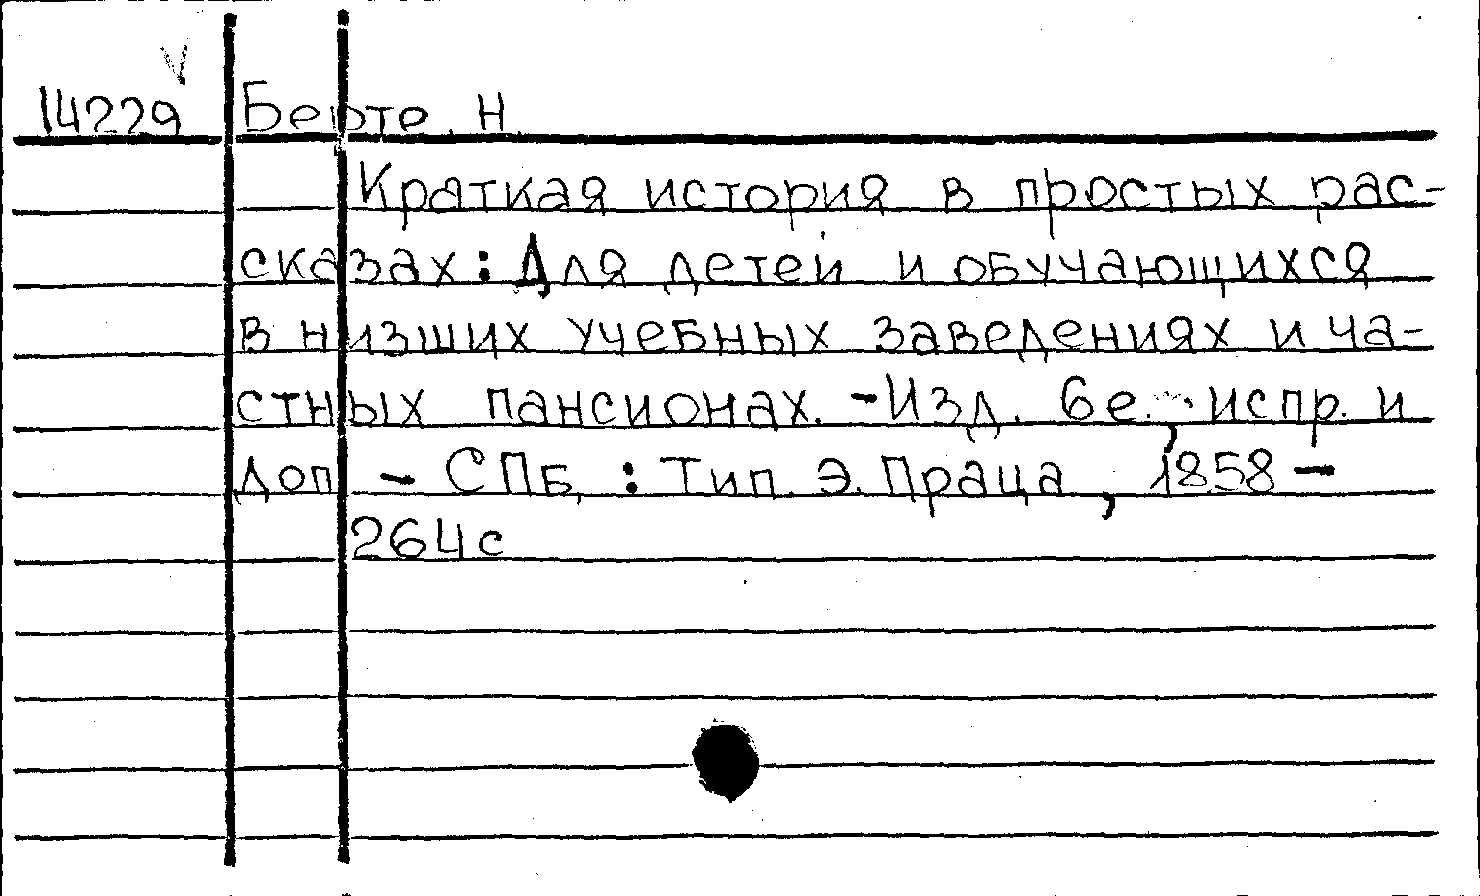 14229 Берте. Н
Краткая история в простых рас-
сказах: Для детей и обучающихся
в низших учебных заведениях и ча-
стных пансионах. - Изд. 6е., испр. и
доп - СПБ, : Тип. Э. Праца, 1858 -
264с